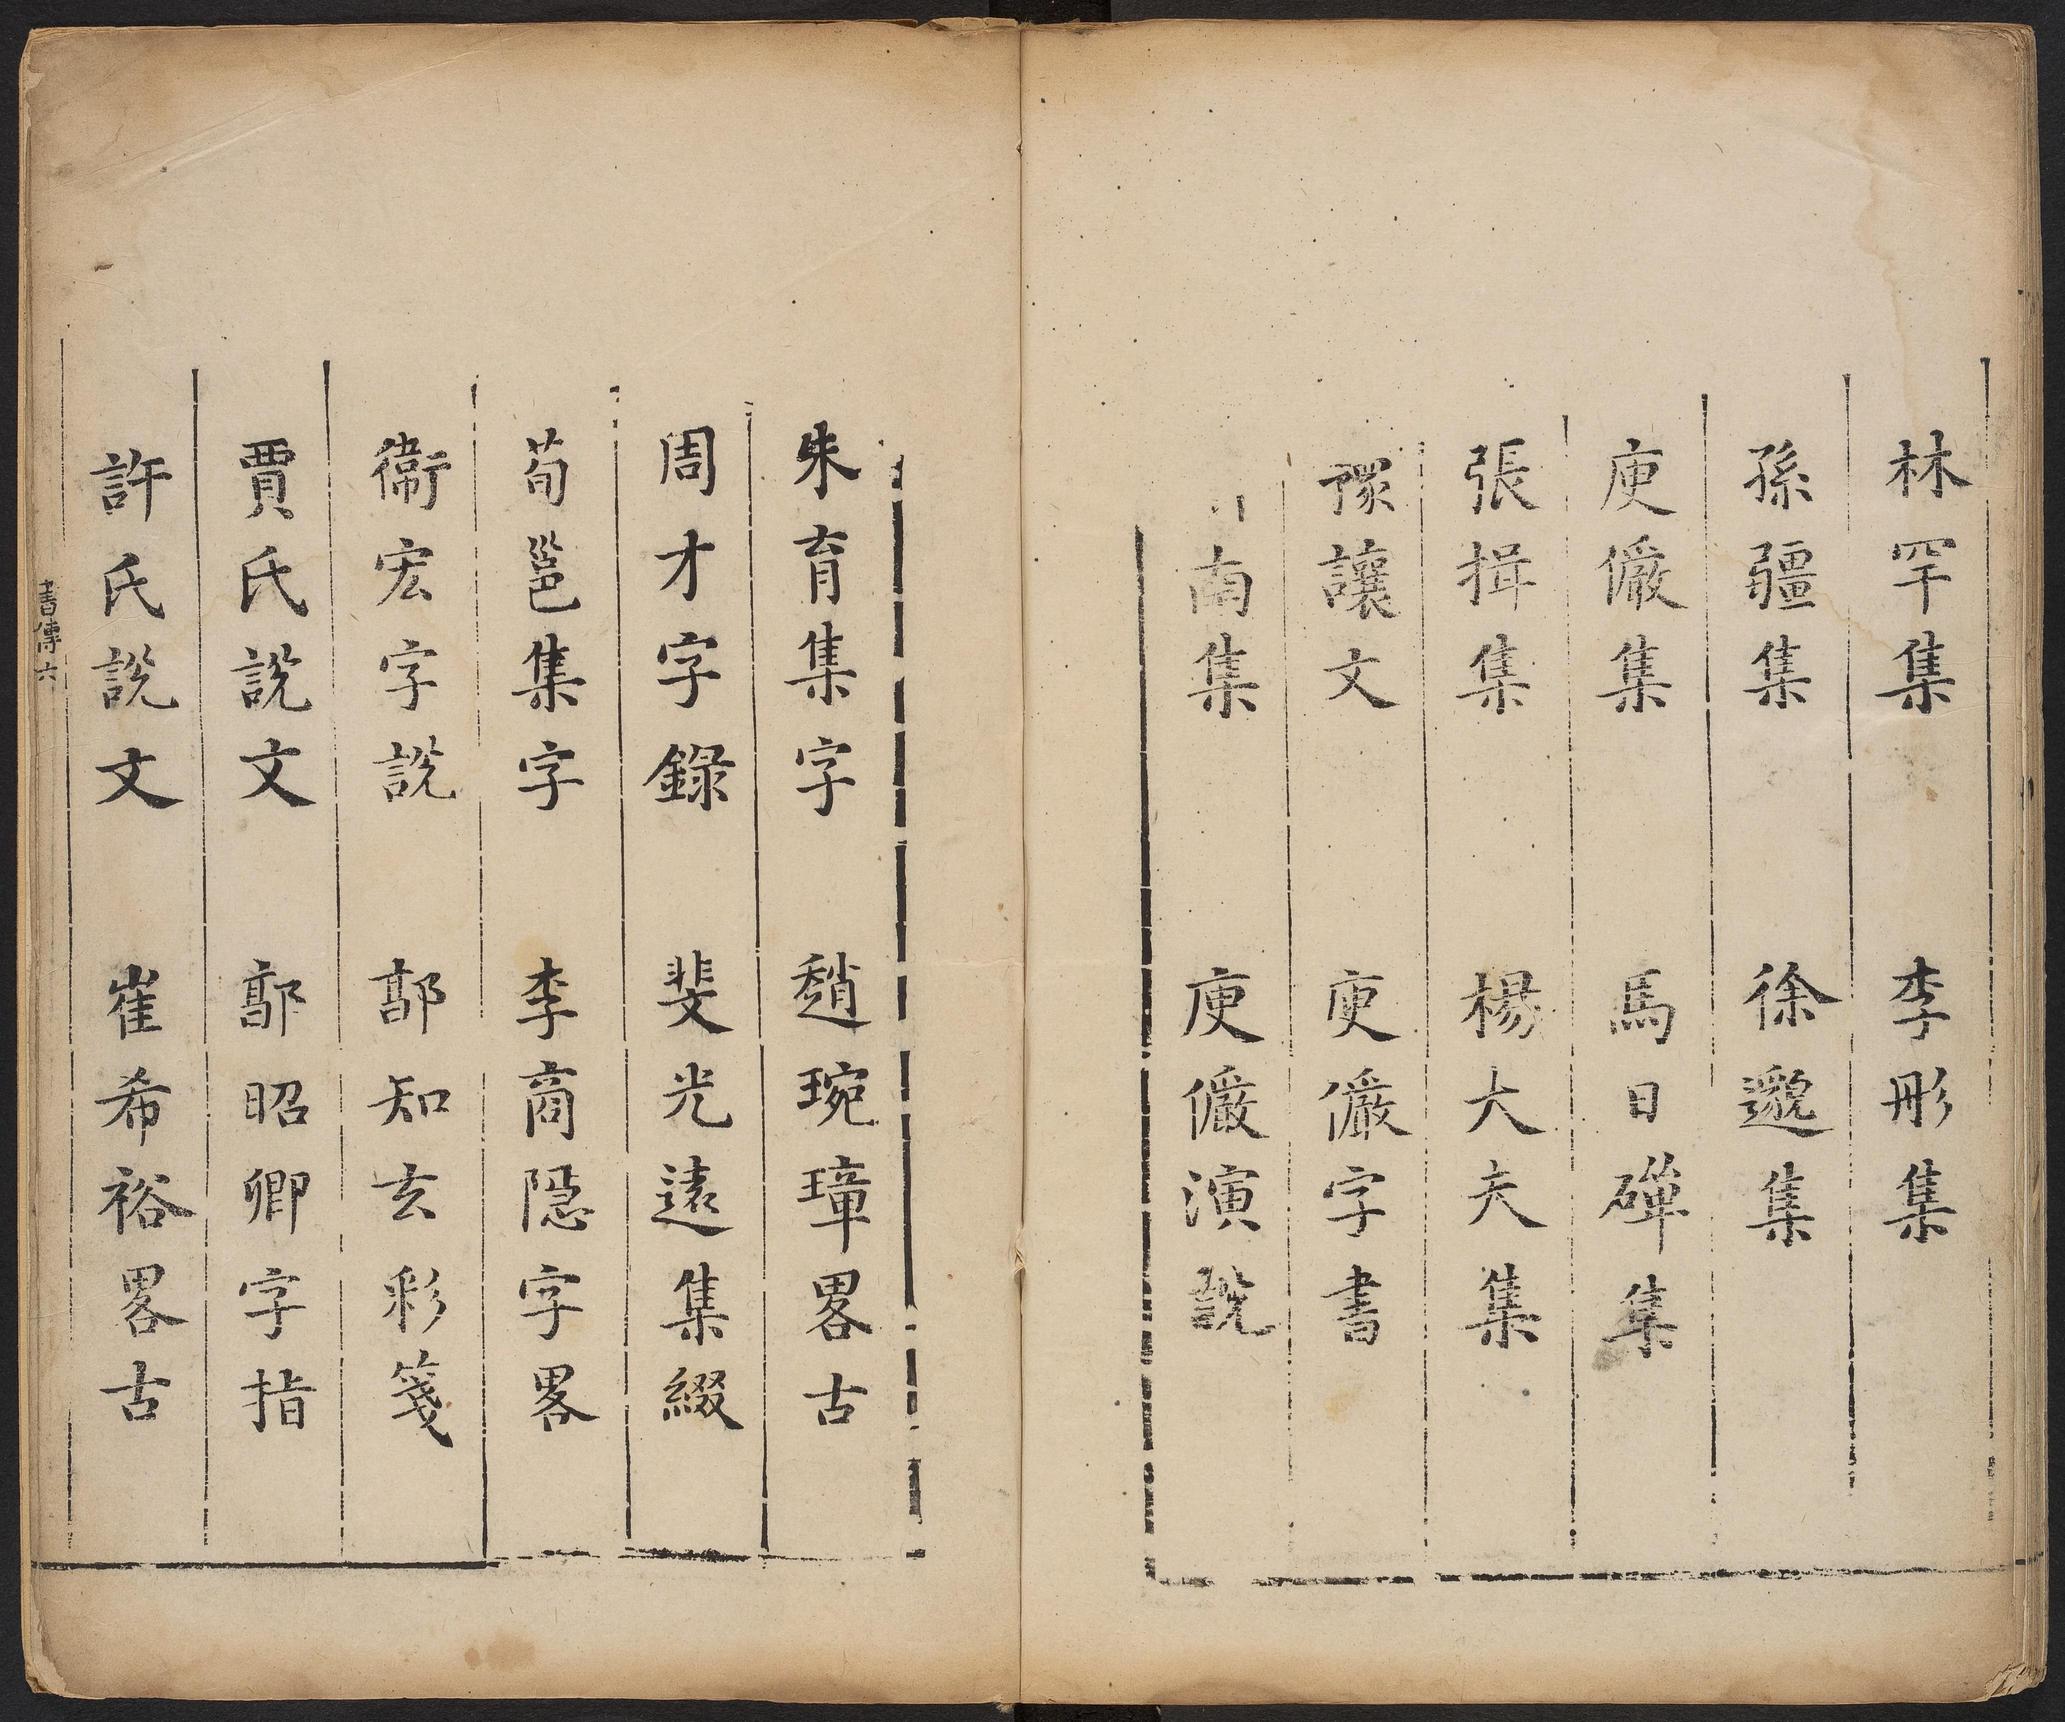 林罕集　李彤集
孫疆集　徐邈集
庾儼集　馬日磾集
張揖集　楊大夫集
豫讓文　庾儼字書
南集　庾儼演說
朱育集字　趙琬璋畧古
周才字錄　斐光遠集綴
荀邕集字　李商隱字畧
衞宏字說　郭知玄彩箋
賈氏說文　郭昭卿字指
許氏說文　崔希裕畧古
書傳　六